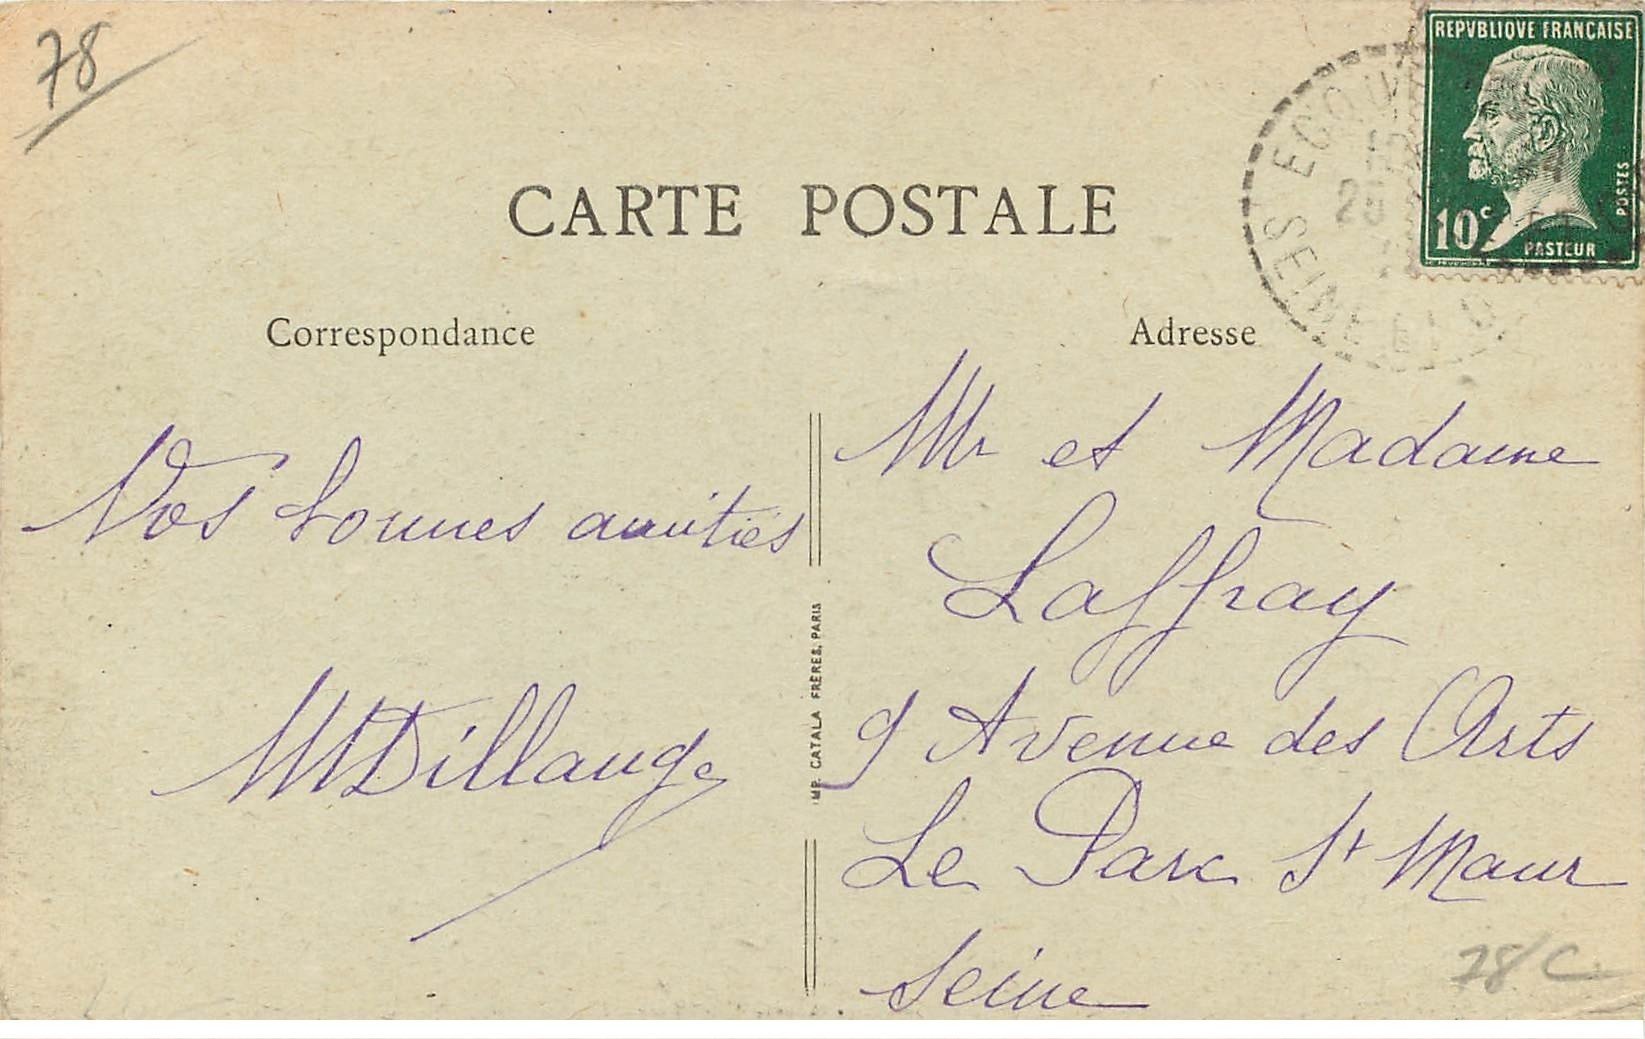 78
REPVBLIQVE FRANÇAISE
POSTES
10c
PASTEUR
SEINE ET O
CARTE POSTALE
Correspondance
Adresse
Vos bonnes amitiés
MDillange
IMP. CATALA FRÈRES, PARIS
Mr et Madame
Laffray
9 Avenue des Arts
Le Parc St Maur
Seine
78/C